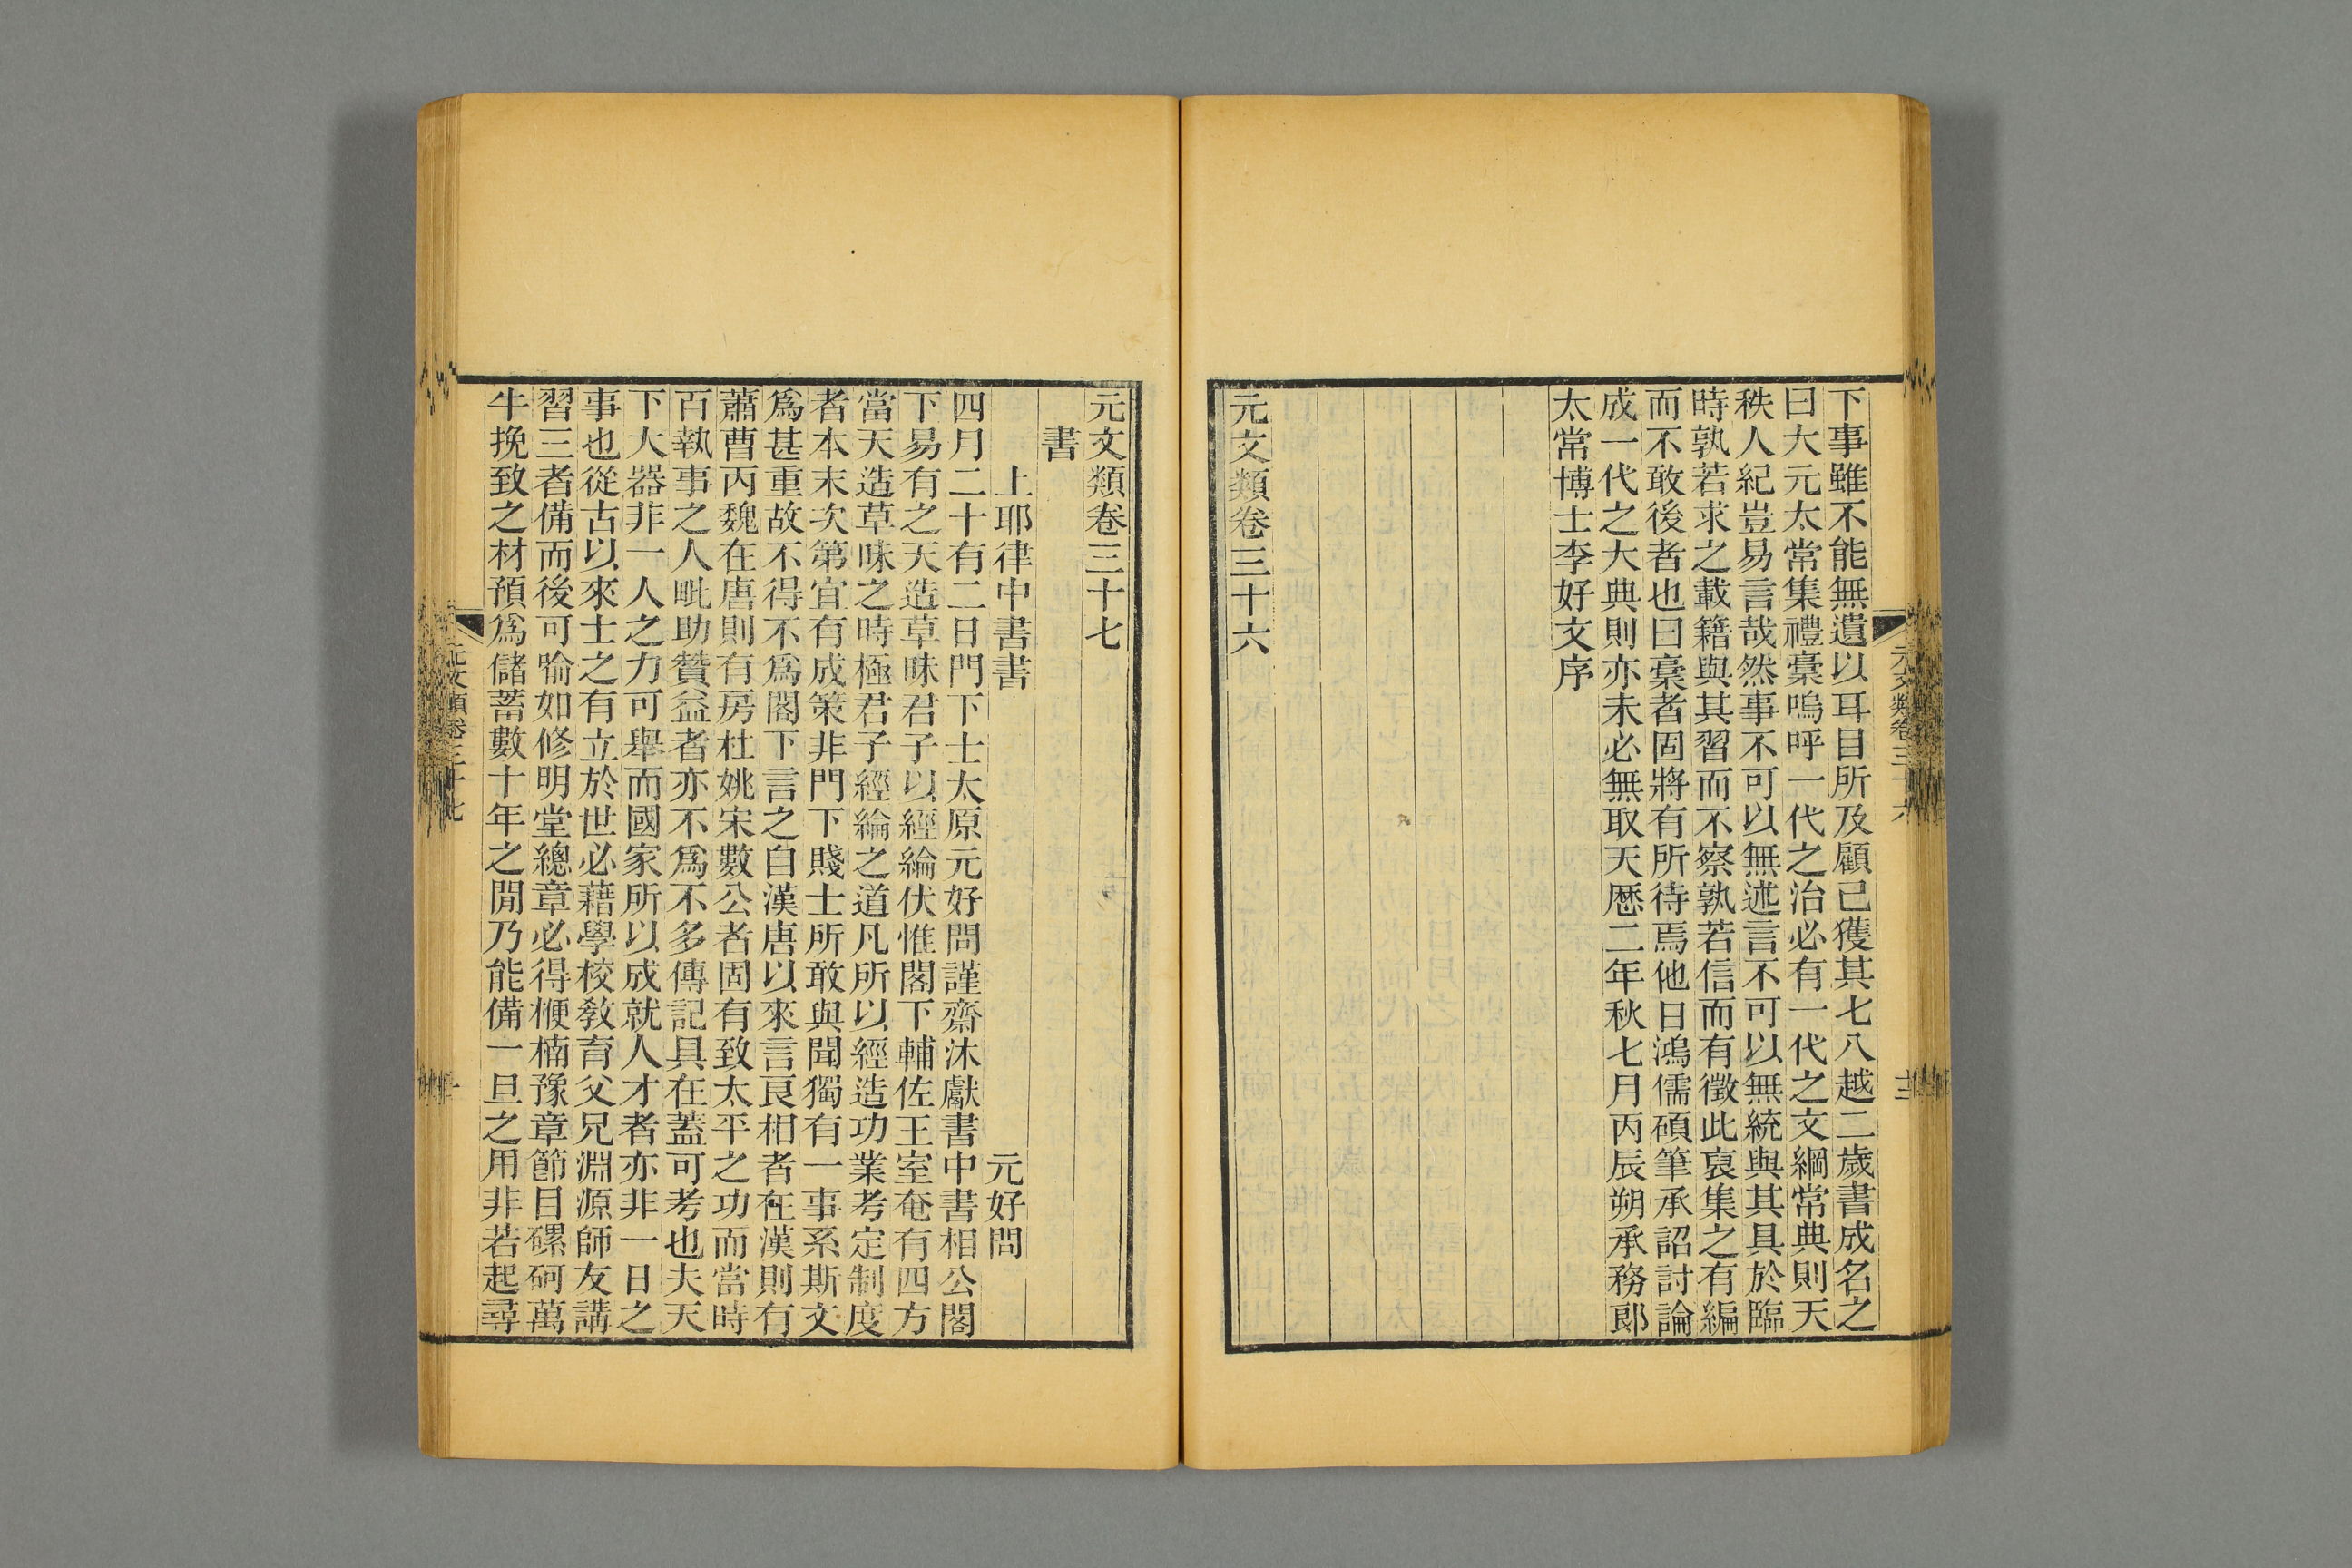 下事雖不能無遺以耳目所及顧已獲其七八越二歲書成名之
曰大元太常集禮稾嗚呼一代之治必有一代之文綱常典則天
秩人紀豈易言哉然事不可以無述言不可以無統與其具於臨
時孰若求之載籍與其習而不察孰若信而有徵此裒集之有編
而不敢後者也曰稾者固將有所待焉他日鴻儒碩筆承詔討論
成一代之大典則亦未必無取天厯二年秋七月丙辰朔承務郎
太常博士李好文序
元文類卷三十六
元文類卷三十六
十三
元文類卷三十七
書
上耶律中書書
元好問
四月二十有二日門下士太原元好問謹齋沐獻書中書相公閣
下易有之天造草昧君子以經綸伏惟閣下輔佐王室奄有四方
當天造草昧之時極君子經綸之道凡所以經造功業考定制度
者本末次第宜有成策非門下賤士所敢與聞獨有一事系斯文
爲甚重故不得不爲閣下言之自漢唐以來言良相者在漢則有
蕭曹丙魏在唐則有房杜姚宋數公者固有致太平之功而當時
百執事之人毗助贊益者亦不爲不多傳記具在蓋可考也夫天
下大器非一人之力可舉而國家所以成就人才者亦非一日之
事也從古以來士之有立於世必藉學校敎育父兄淵源師友講
習三者備而後可喻如修明堂總章必得楩楠豫章節目磥砢萬
牛挽致之材預爲儲蓄數十年之閒乃能備一旦之用非若起尋
元文類卷三十七